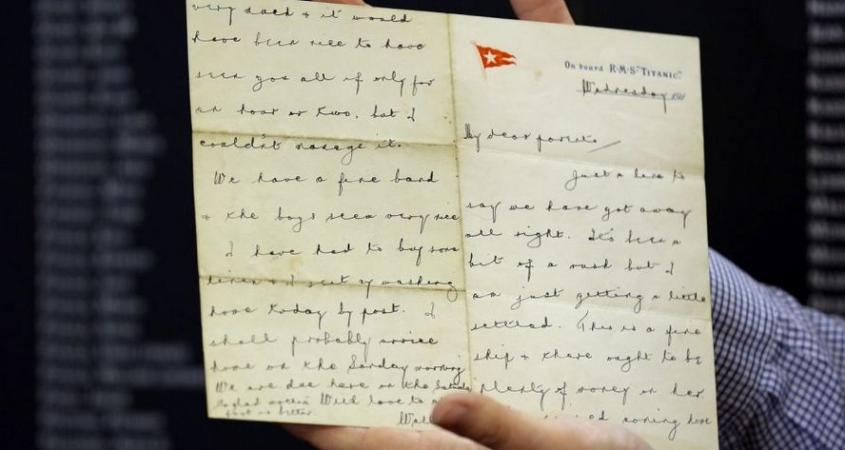 On board R.M.S. "TITANIC."
Wednesday 191
My dear parents
Just a line to
say we have got away
all right. It's been a
bit of a rush but I
am just getting a little
settled. This is a fine
ship & there ought to be
plenty of money on her.
missed coming home
very much & it would
have been nice to have
seen you all if only for
an hour or two, but I
couldn't manage it.
We have a fine band
& the boys seem very nice
I have had to buy some
linen & I sent my washing
home today by post. I
shall probably arrive
home on the Sunday morning
We are due here on the Saturday
So glad mother's With love to
foot is better.